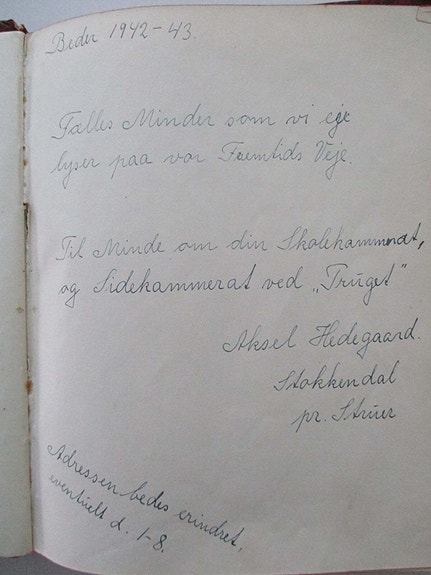 Beder 1942-43.
Fælles Minder som vi eje
lyser paa vor Fremtids Veje.
Til Minde om din Skolekammerat,
og Sidekammerat ved „Truget"
Aksel Hedegaard.
Stokkendal
pr. Struer
Adressen bedes erindret,
eventuelt d. 1-8.